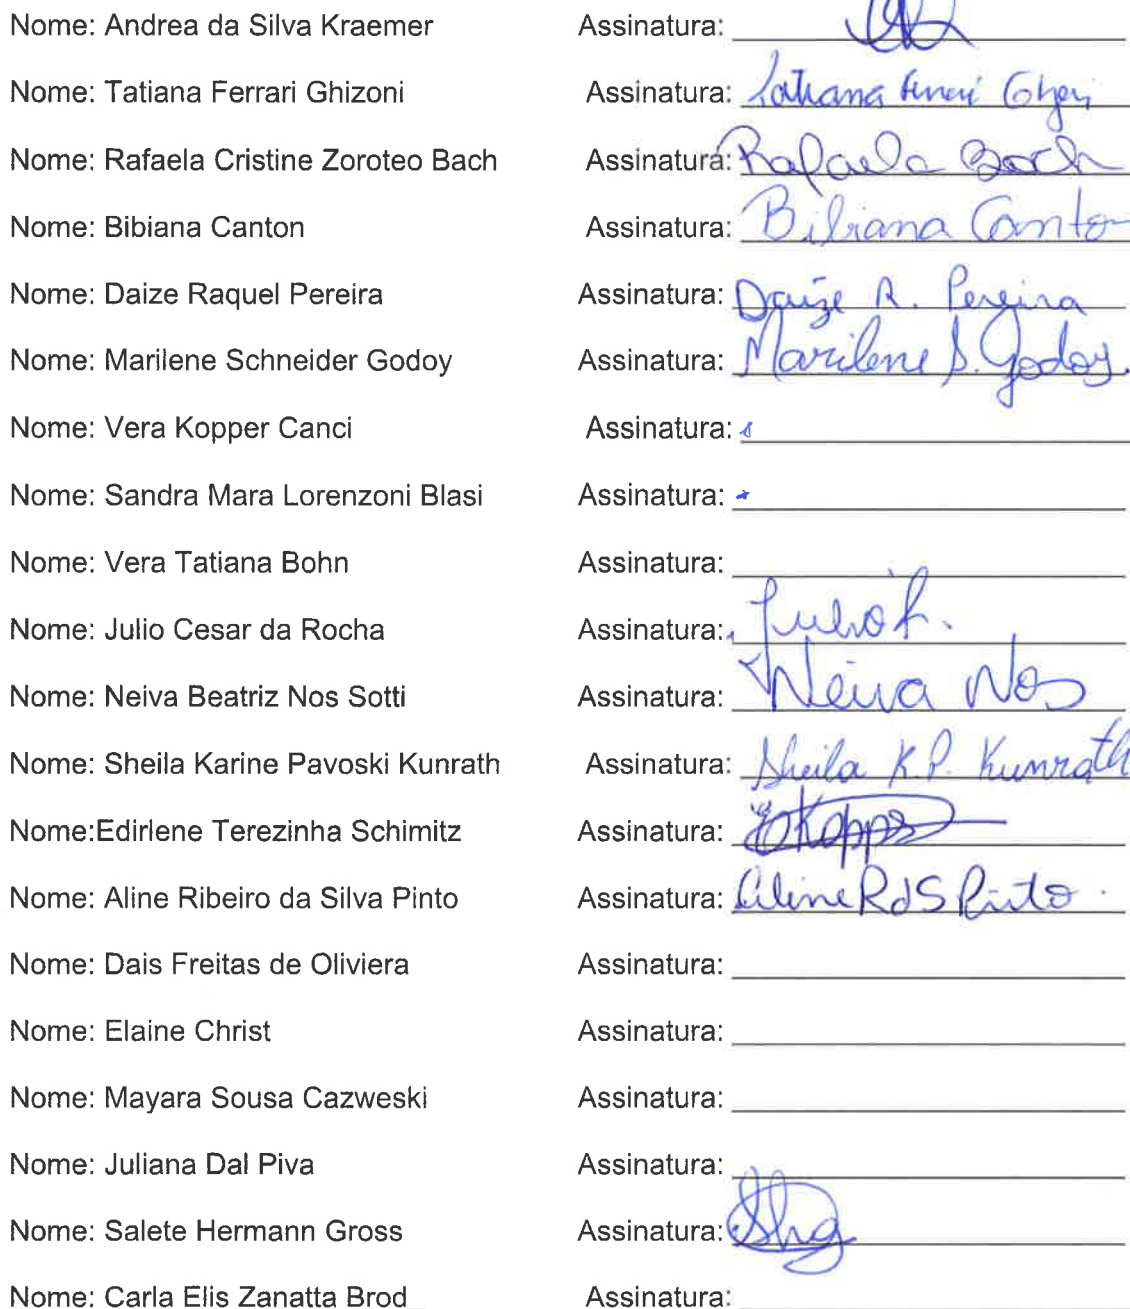 Nome: Andrea da Silva Kraemer Assinatura:
Nome: Tatiana Ferrari Ghizoni Assinatura: Tatiana
Nome: Rafaela Cristine Zoroteo Bach Assinatura: Rafaela Bach
Nome: Bibiana Canton Assinatura: Bibiana Canton
Nome: Daize Raquel Pereira Assinatura: Daize R. Pereira
Nome: Marilene Schneider Godoy Assinatura: Marilene S. Godoy.
Nome: Vera Kopper Canci Assinatura:
Nome: Sandra Mara Lorenzoni Blasi Assinatura:
Nome: Vera Tatiana Bohn Assinatura:
Nome: Julio Cesar da Rocha Assinatura: Julio R.
Nome: Neiva Beatriz Nos Sotti Assinatura: Neiva Nos
Nome: Sheila Karine Pavoski Kunrath Assinatura: Sheila K.P. Kunrath
Nome:Edirlene Terezinha Schimitz Assinatura:
Nome: Aline Ribeiro da Silva Pinto Assinatura: Aline RdS Pinto.
Nome: Dais Freitas de Oliviera Assinatura:
Nome: Elaine Christ Assinatura:
Nome: Mayara Sousa Cazweski Assinatura:
Nome: Juliana Dal Piva Assinatura:
Nome: Salete Hermann Gross Assinatura: Shg
Nome: Carla Elis Zanatta Brod Assinatura: